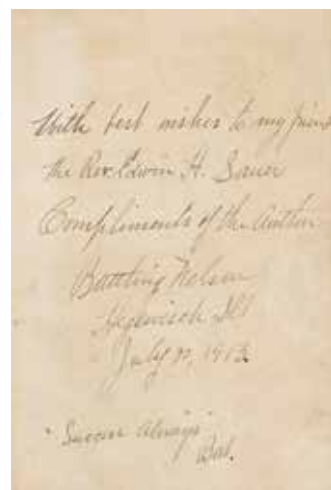 With best wishes to my friend
the Rev. Edwin H. Sauer
Compliments of the Author
Battling Nelson
Hegewisch Ill
July 1912
"Success Always"
Bat.